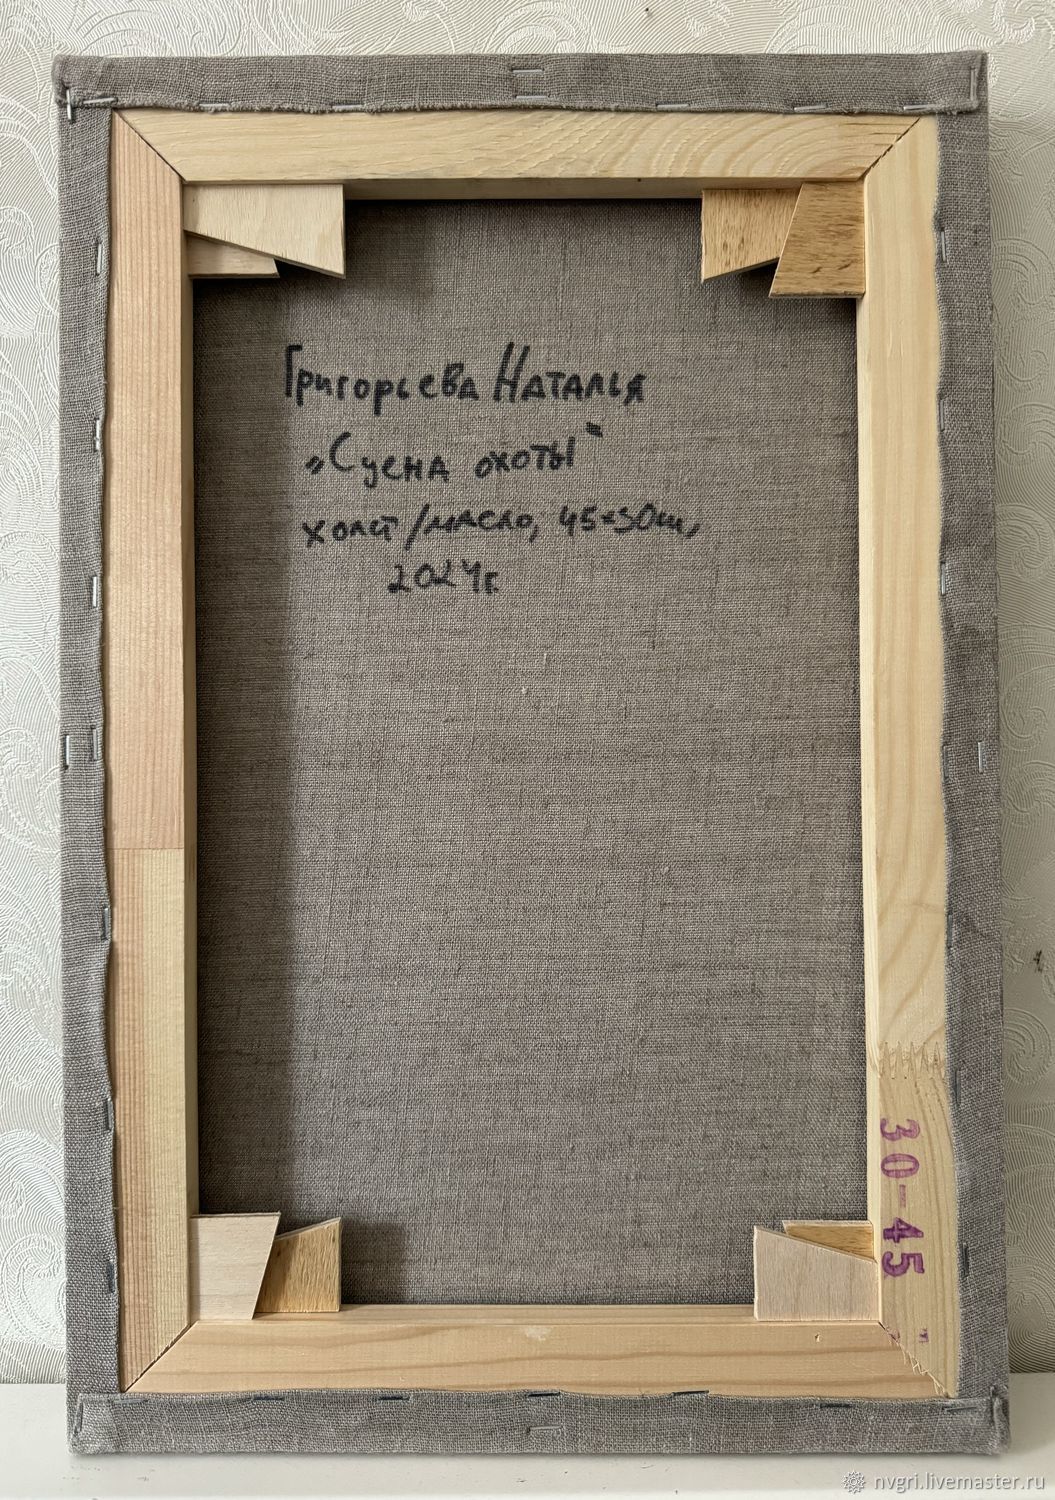 Григорьева Наталья
„Сцена охоты"
холст/масло, 45×30см,
2024г.
30-45
nvgri.livemaster.ru